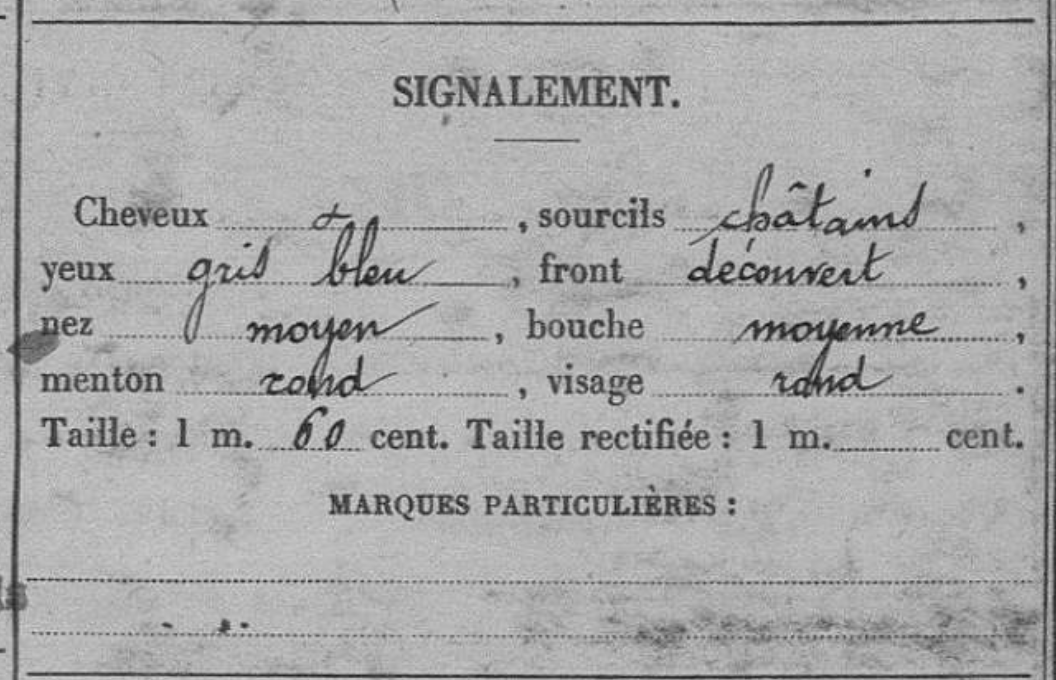 SIGNALEMENT.
Cheveux &, sourcils châtains,
yeux gris bleu, front découvert,
nez moyen, bouche moyenne,
menton rond, visage rond.
Taille : 1 m. 60 cent. Taille rectifiée : 1 m. cent.
MARQUES PARTICULIÈRES :